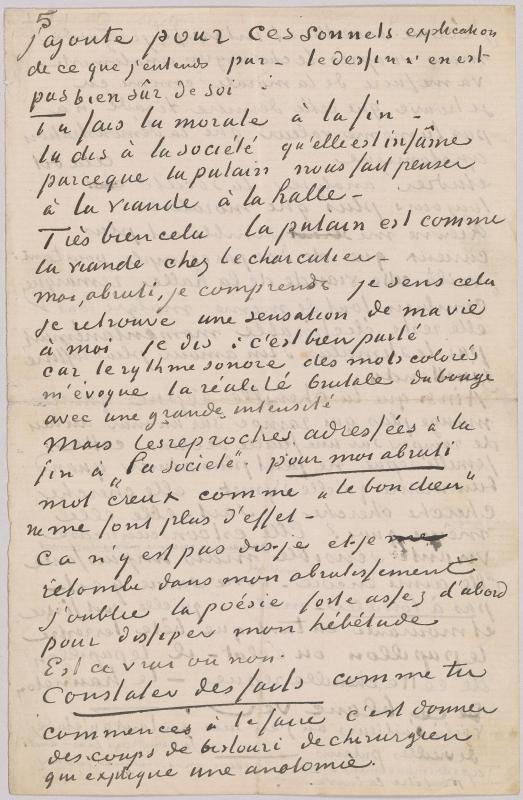 5
j'ajoute pour ces sonnets explication
de ce que j'entends par – le dessin n'en est
pas bien sûr de soi.
Tu fais la morale à la fin –
tu dis à la société qu'elle est infâme
parceque la putain nous fait penser
à la viande à la halle –
Très bien cela la putain est comme
la viande chez le charcutier –
moi, abruti, je comprends je sens cela
je retrouve une sensation de ma vie
à moi je dis : c'est bien parlé
car le rythme sonore des mots colorés
m'évoque la réalité brutale du bouge
avec une grande intensité
mais les reproches adressées à la
fin à "la société". pour moi abruti
mot creux comme „le bon dieu"
ne me font plus d'effet –
Ca n'y est pas dis-je et je
retombe dans mon abrutissement
j'oublie la poésie forte assez d'abord
pour dissiper mon hébétude
Est ce vrai ou non.
Constater des faits comme tu
commences à le faire c'est donner
des coups de bistouri de chirurgien
qui explique une anatomie.